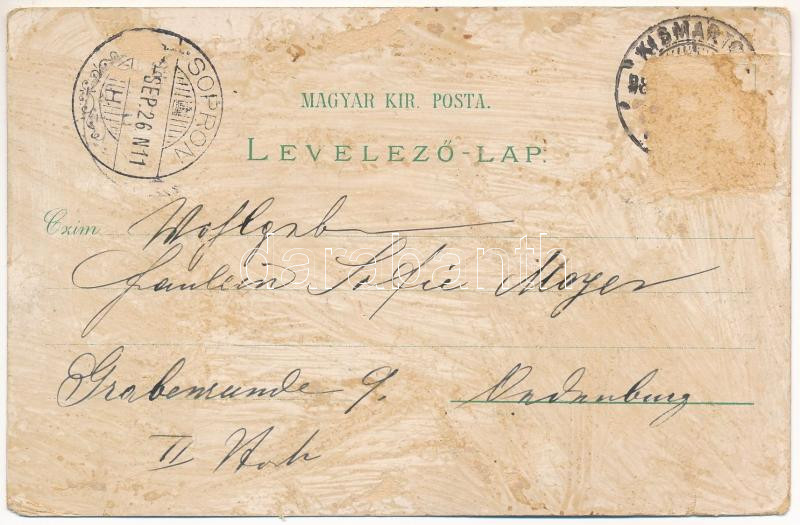 SOPRON
SEP. 26 N11
H
KISMARTO
MAGYAR KIR. POSTA.
LEVELEZŐ-LAP.
Czim
Wohlgeb
Fräulein Sofie Mayer
Grabenrunde 9. Oedenburg
II Stock
darabanth